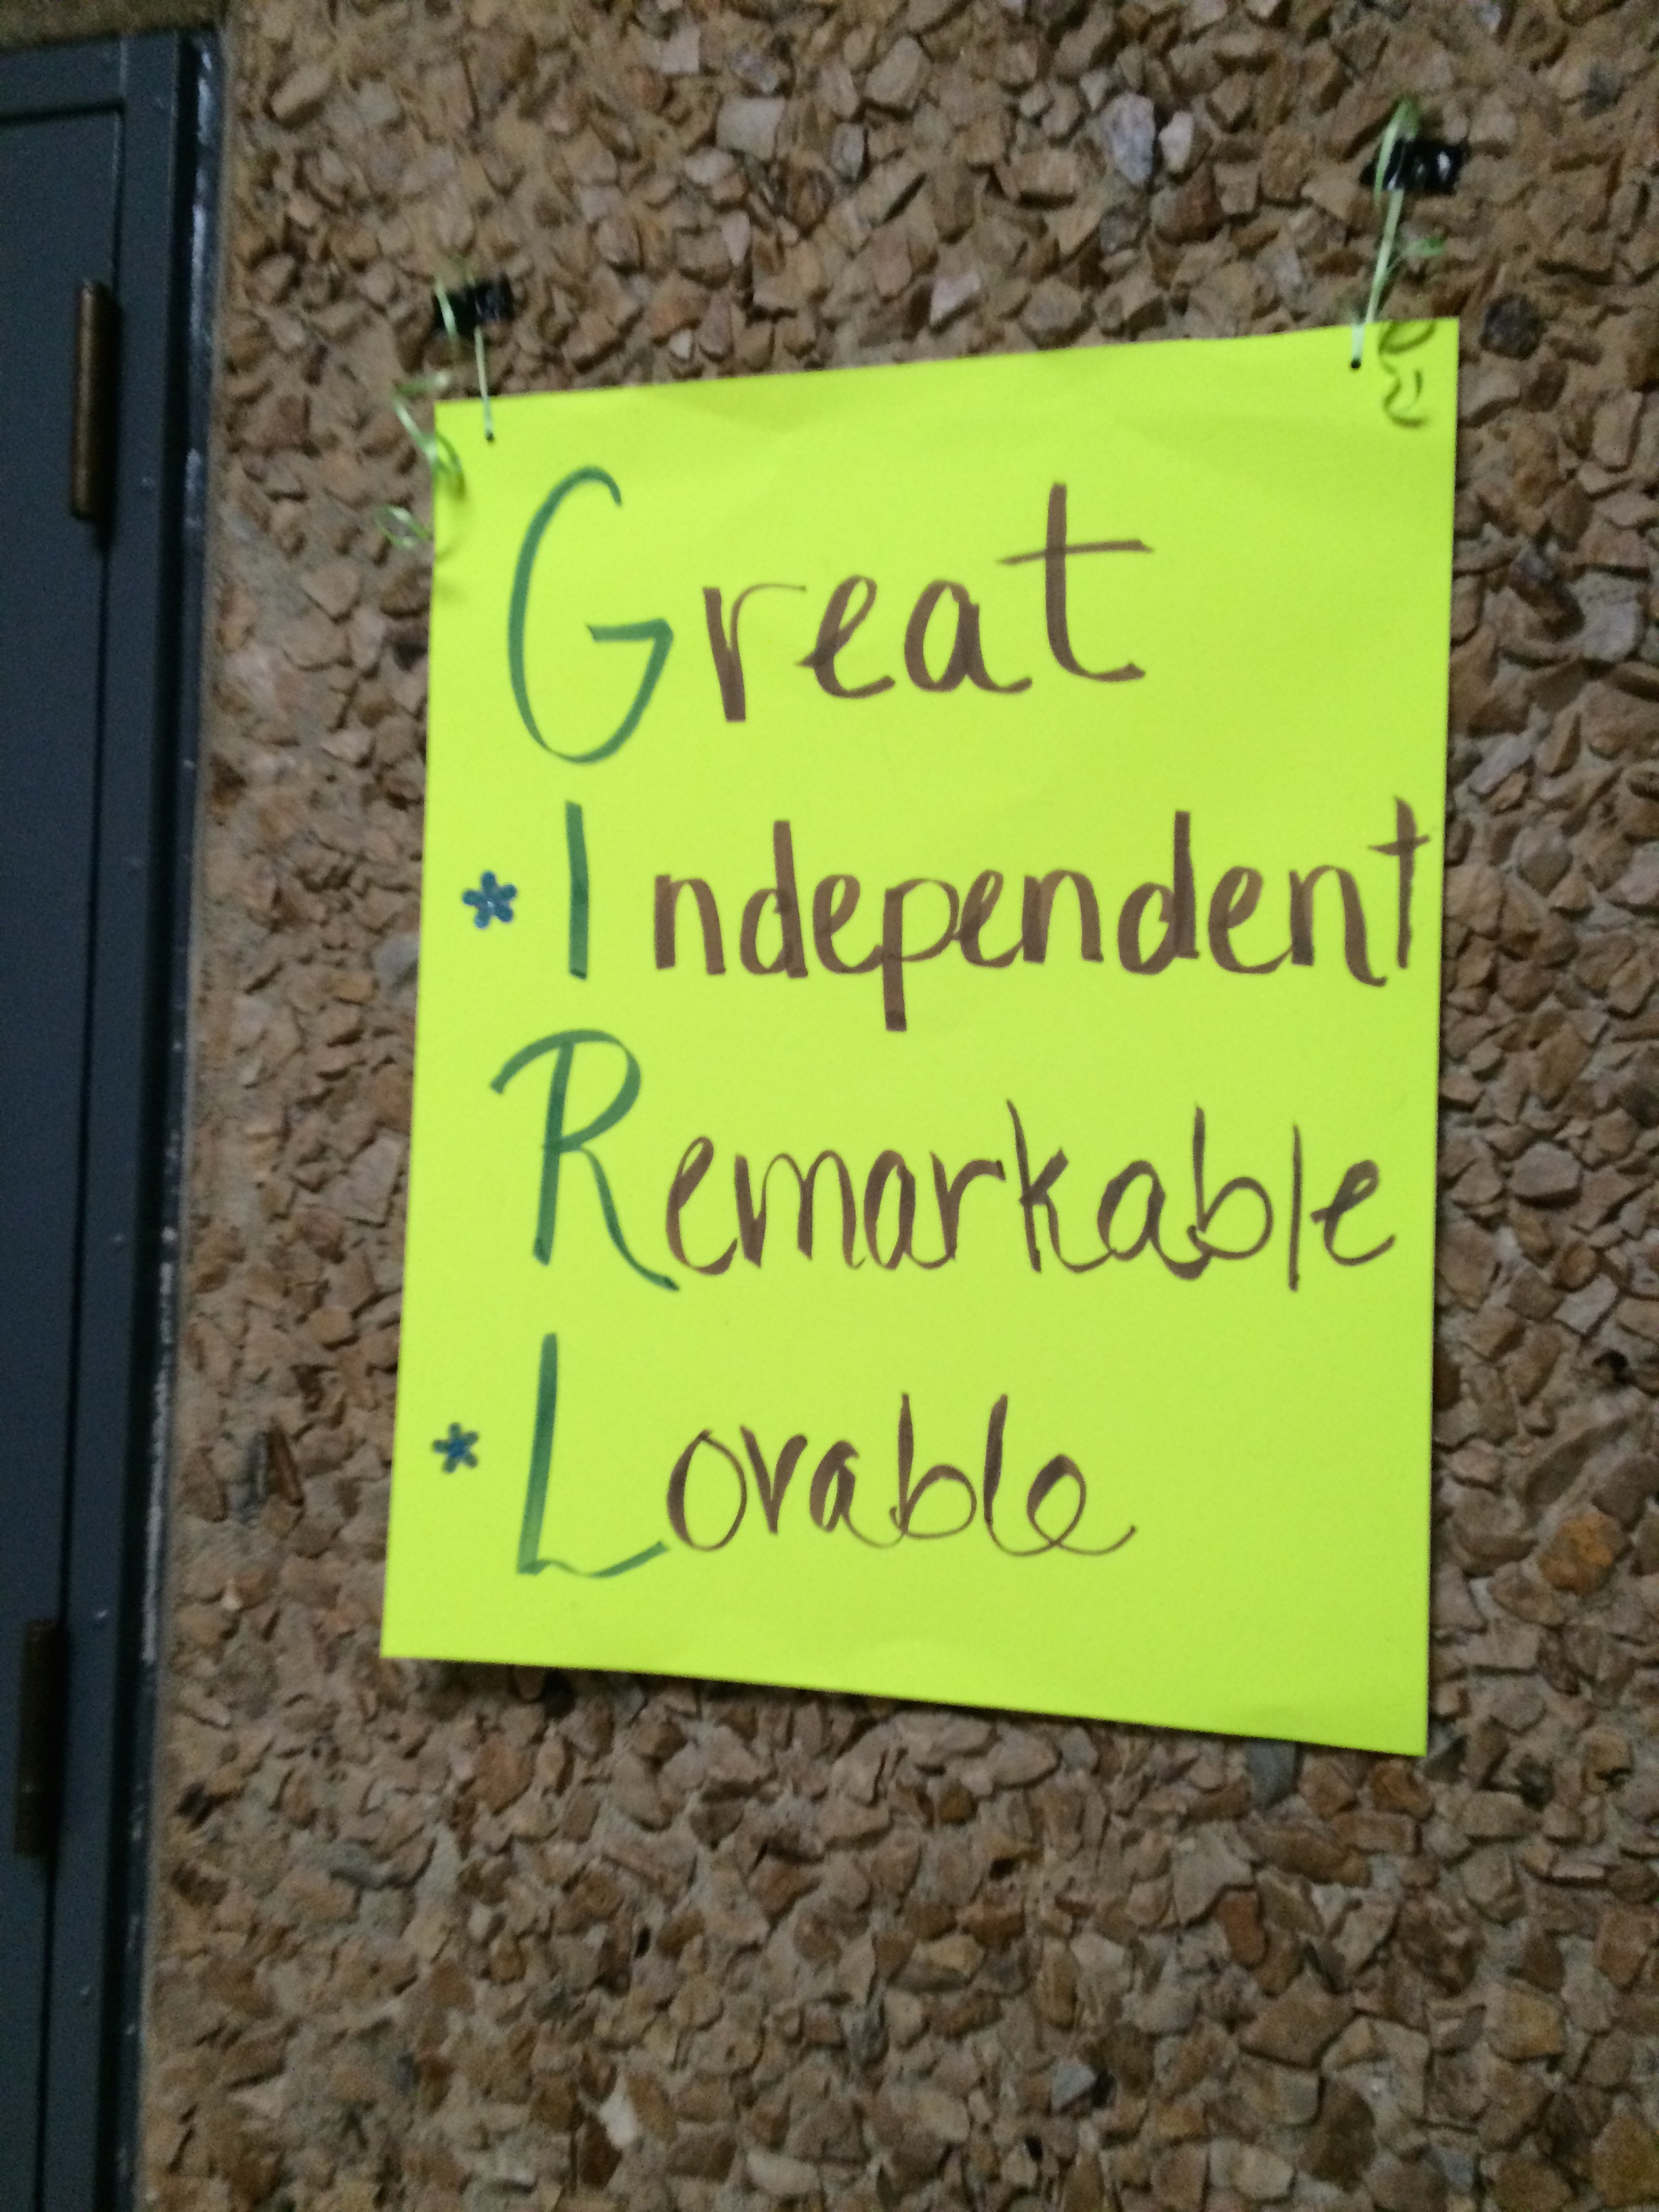 Great
* Independent
Remarkable
* Lovable